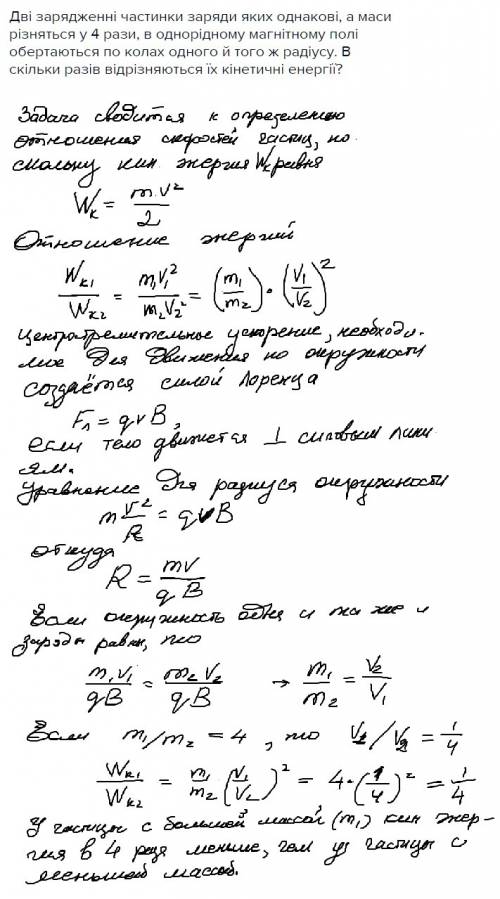 Дві зарядженні частинки заряди яких однакові, а маси
різняться у 4 рази, в однорідному магнітному полі
обертаються по колах одного й того ж радіусу. В
скільки разів відрізняються їх кінетичні енергії?
Задача сводится к определению
отношения скоростей частиц, по
скольку кин. энергия Wк равна
Wк = m v² / 2
Отношение энергий
Wк1 / Wк2 = m₁v₁² / m₂v₂² = (m₁/m₂) · (v₁/v₂)²
Центростремительное ускорение, необходи-
мое для движения по окружности
создаётся силой Лоренца
Fл = qvB,
если тело движется ⊥ силовым лини
ям.
Уравнение для радиуса окружности
m v²/R = qvB
откуда
R = mv / qB
Если окружность одна и та же и
заряды равны, то
m₁v₁ / qB = m₂v₂ / qB → m₁/m₂ = v₂/v₁
Если m₁/m₂ = 4, то v₁/v₂ = 1/4
Wк1 / Wк2 = m₁/m₂ (v₁/v₂)² = 4·(1/4)² = 1/4
У частицы с большей массой (m₁) кин энер-
гия в 4 раза меньше, чем у частицы с
меньшей массой.